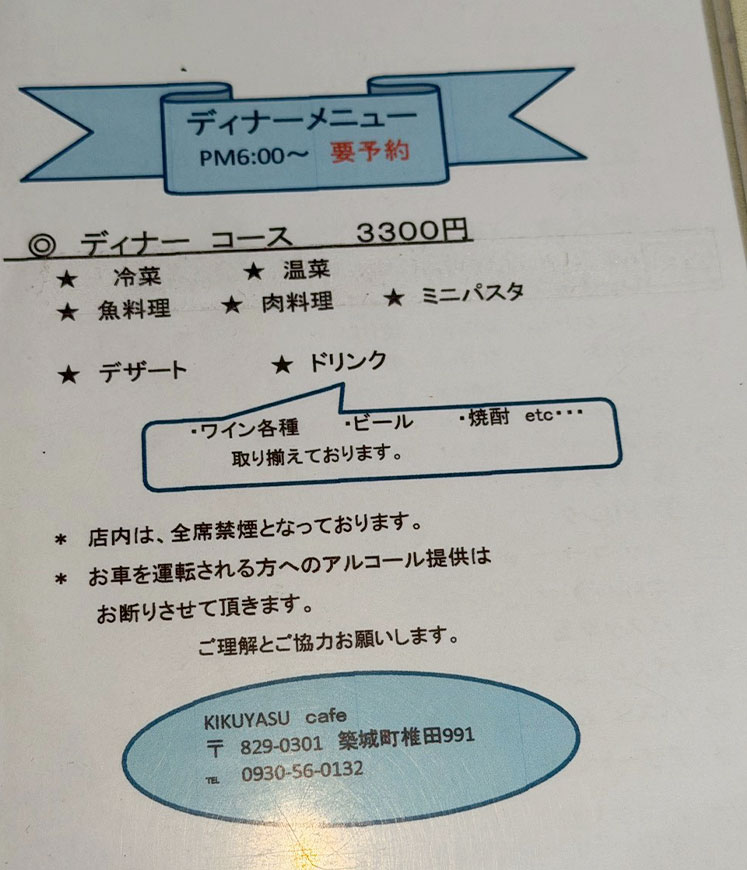 ディナーメニュー
PM6:00～ 要予約
◎ ディナー コース 3300円
★ 冷菜 ★ 温菜
★ 魚料理 ★ 肉料理 ★ ミニパスタ
★ デザート ★ ドリンク
・ワイン各種 ・ビール ・焼酎 etc・・・
取り揃えております。
* 店内は、全席禁煙となっております。
* お車を運転される方へのアルコール提供は
お断りさせて頂きます。
ご理解とご協力お願いします。
KIKUYASU cafe
〒 829-0301 築城町椎田991
℡ 0930-56-0132